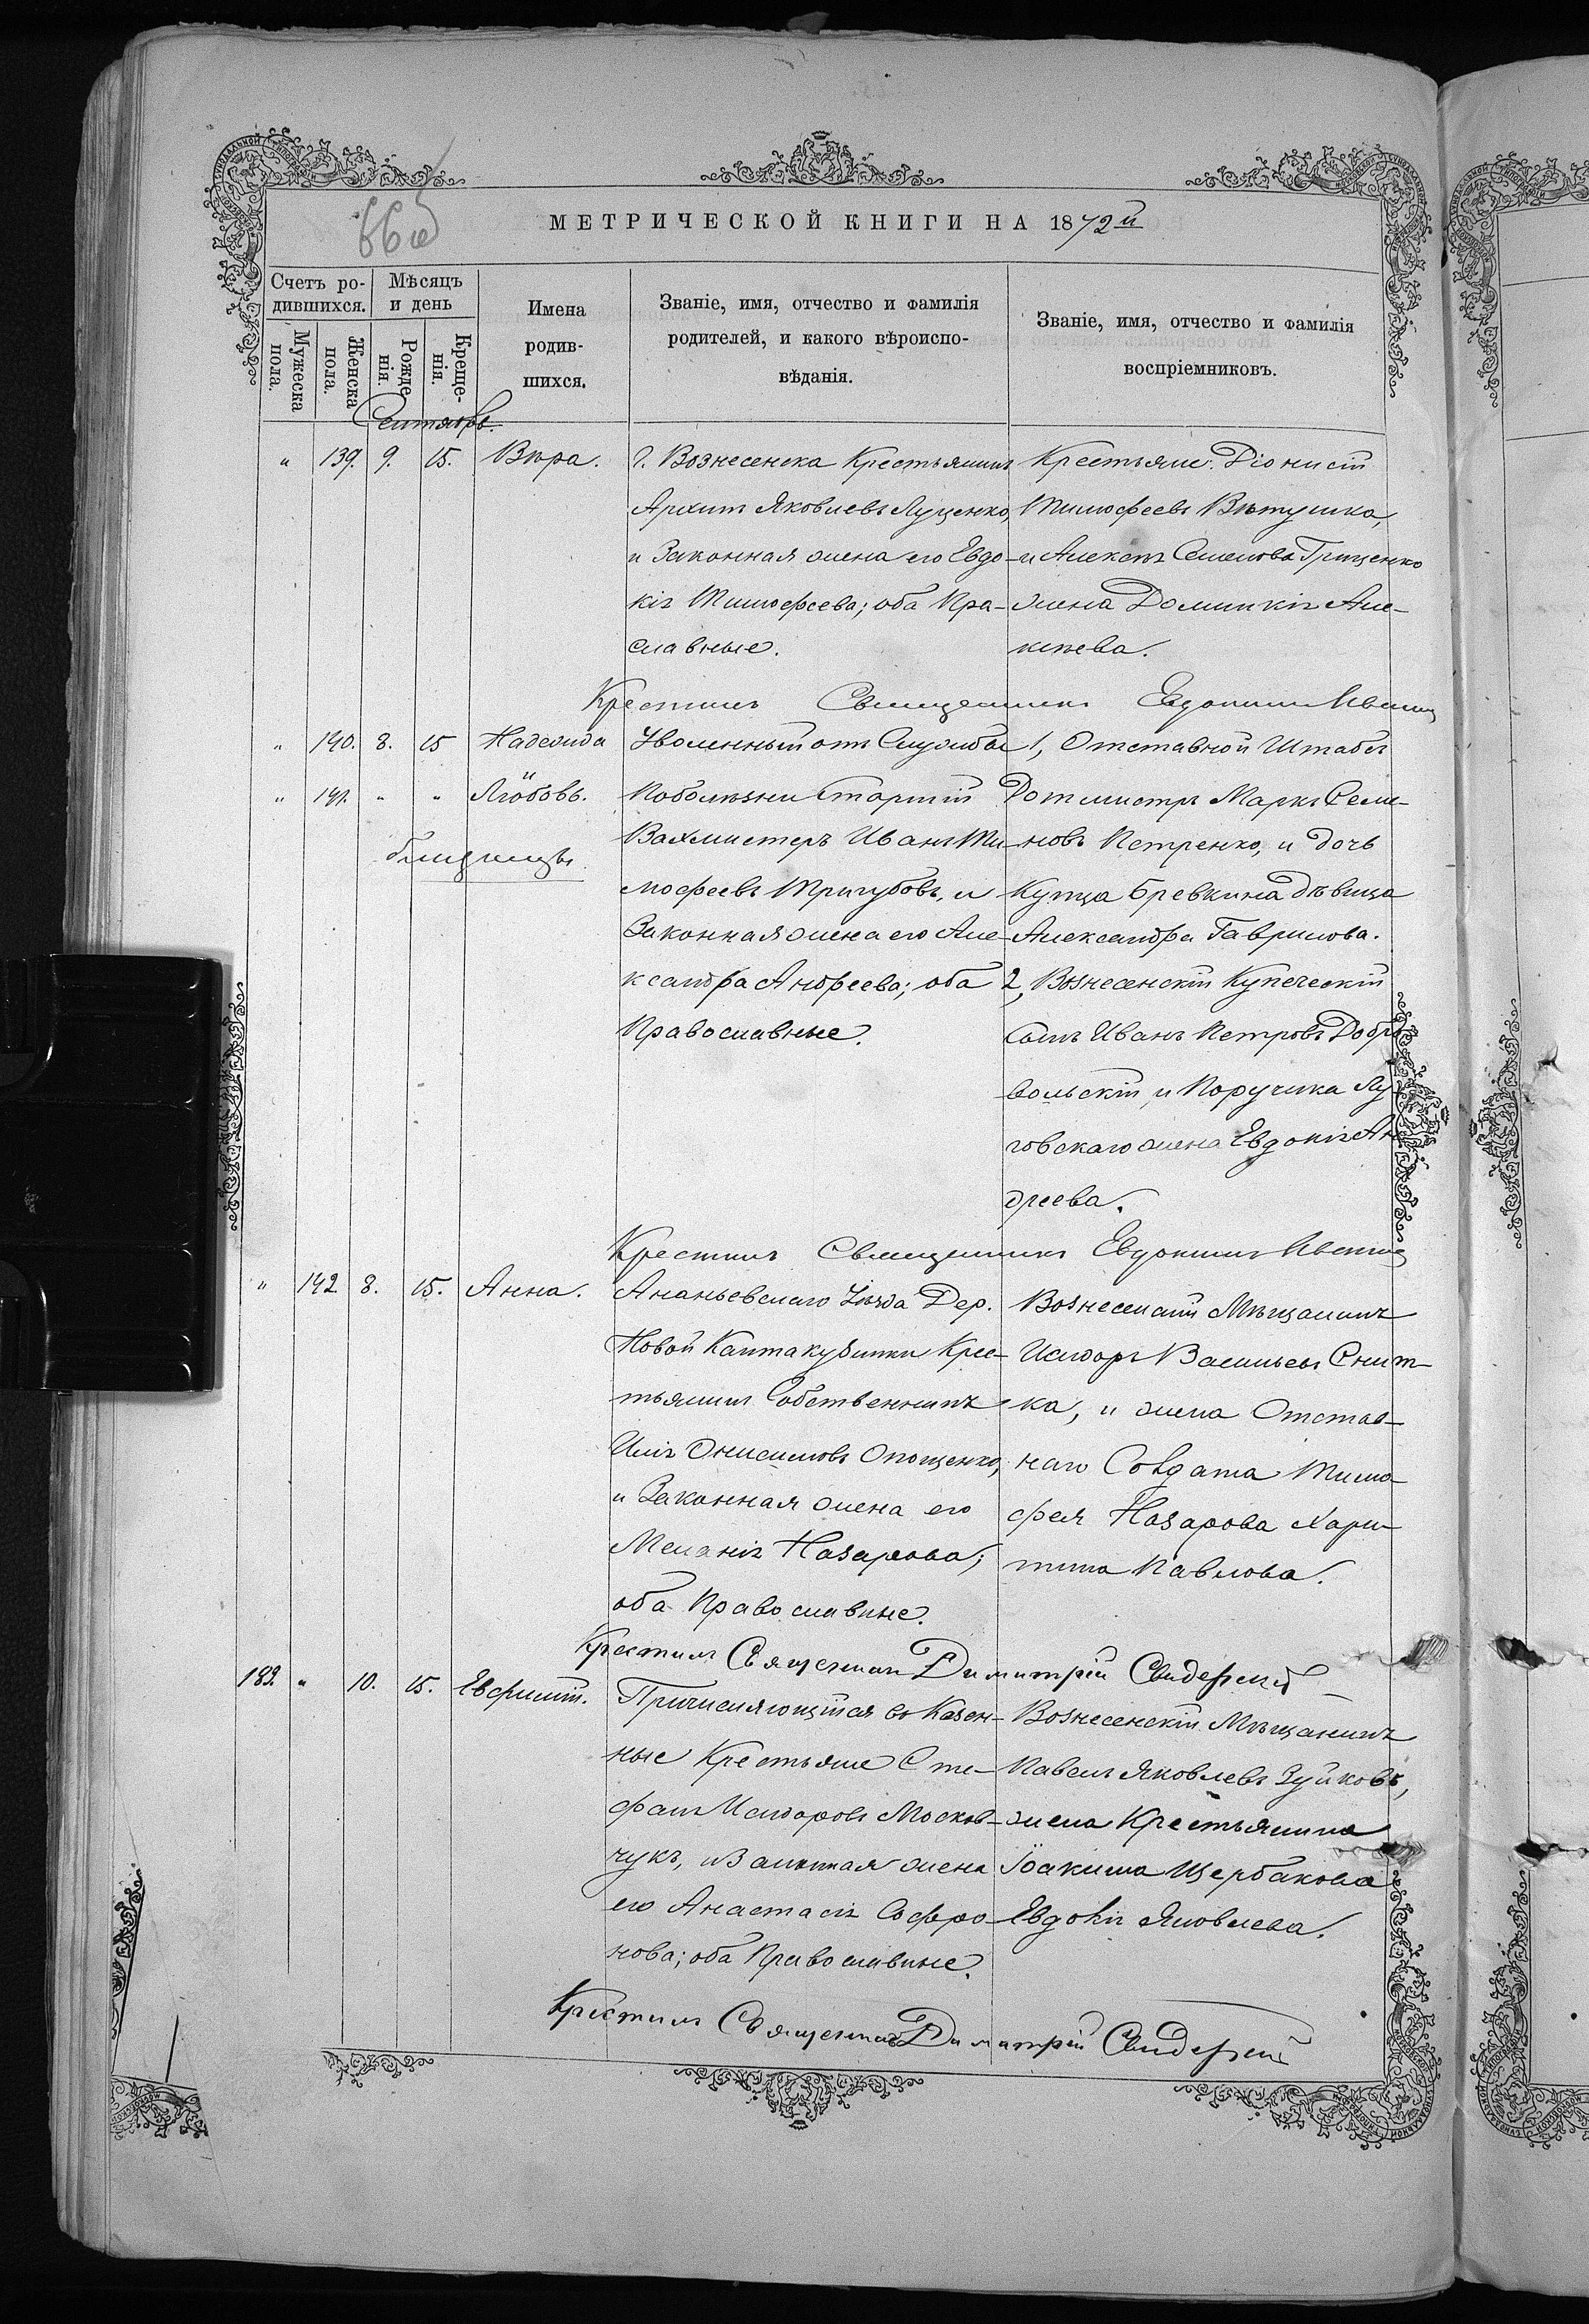 МЕТРИЧЕСКОЙ КНИГИ НА 1872й
Счетъ ро-
дившихся.
Мѣсяцъ
и день
Мужеска
пола.
Женска
пола.
Рожде
нія.
Креще-
нія.
Имена
родив-
шихся.
Званіе, имя, отчество и фамилія
родителей, и какого вѣроиспо-
вѣданія.
Званіе, имя, отчество и фамилія
воспріемниковъ.
Сентябрь.
" 139. 9. 15. Вѣра.
Г. Вознесенска Крестьянинъ
Архипъ Яковлевъ Луценко,
и Законная жена его Евдо-
кія Тимофеева; оба Пра-
славные.
Крестьяне: Діонисій
Тимофеевъ Вѣтушка,
и Алексѣя Семенова Грищенко
жена Домникія Але-
ксѣева.
Крестилъ Священникъ Евдокимъ
" 140. 8. 15 Надежда
" 141. " " Любовь.
близнецы.
Уволенный отъ Службы
По болѣзни Старшій
Вахмистеръ Иванъ Ти-
мофеевъ Тригубовъ, и
Законная жена его Але-
ксандра Андреева; оба
Православные.
1, Отставной Штабсъ
Ротмистръ Маркъ Семе-
новъ Петренко, и дочь
Купца Бревкина дѣвица
Александра Гаврилова.
2, Вознесенскій Купеческій
Сынъ Иванъ Петровъ Добро
вольскій, и Поручика Лу-
говскаго жена Евдокія Ан
дреева.
Крестилъ Священникъ Евдокимъ
" 142 8. 15. Анна.
Ананьевскаго Уѣзда Дер.
Новой Кантакузинки Крес-
тьянинъ Собственникъ
Илія Онисимовъ Онощенко,
и Законная жена его
Меланія Назарова;
оба Православные.
Вознесенскій Мѣщанинъ
Исидоръ Васильевъ Снит-
ка, и жена Отстав-
наго Солдата Тимо-
фея Назарова Хари-
тина Павлова.
Крестилъ Священникъ Димитрій Свидерскій
182. " 10. 15. Евфимій.
Причисляющійся въ Казен-
ные Крестьяне Сте-
фанъ Исидоровъ Москов-
чукъ, и Законная жена
его Анастасія Софро-
нова; оба Православные.
Вознесенскій Мѣщанинъ
Павелъ Яковлевъ Зуйковъ,
жена Крестьянина
Іоакима Щербакова
Евдокія Яковлева.
Крестилъ Священникъ Димитрій Свидерскій